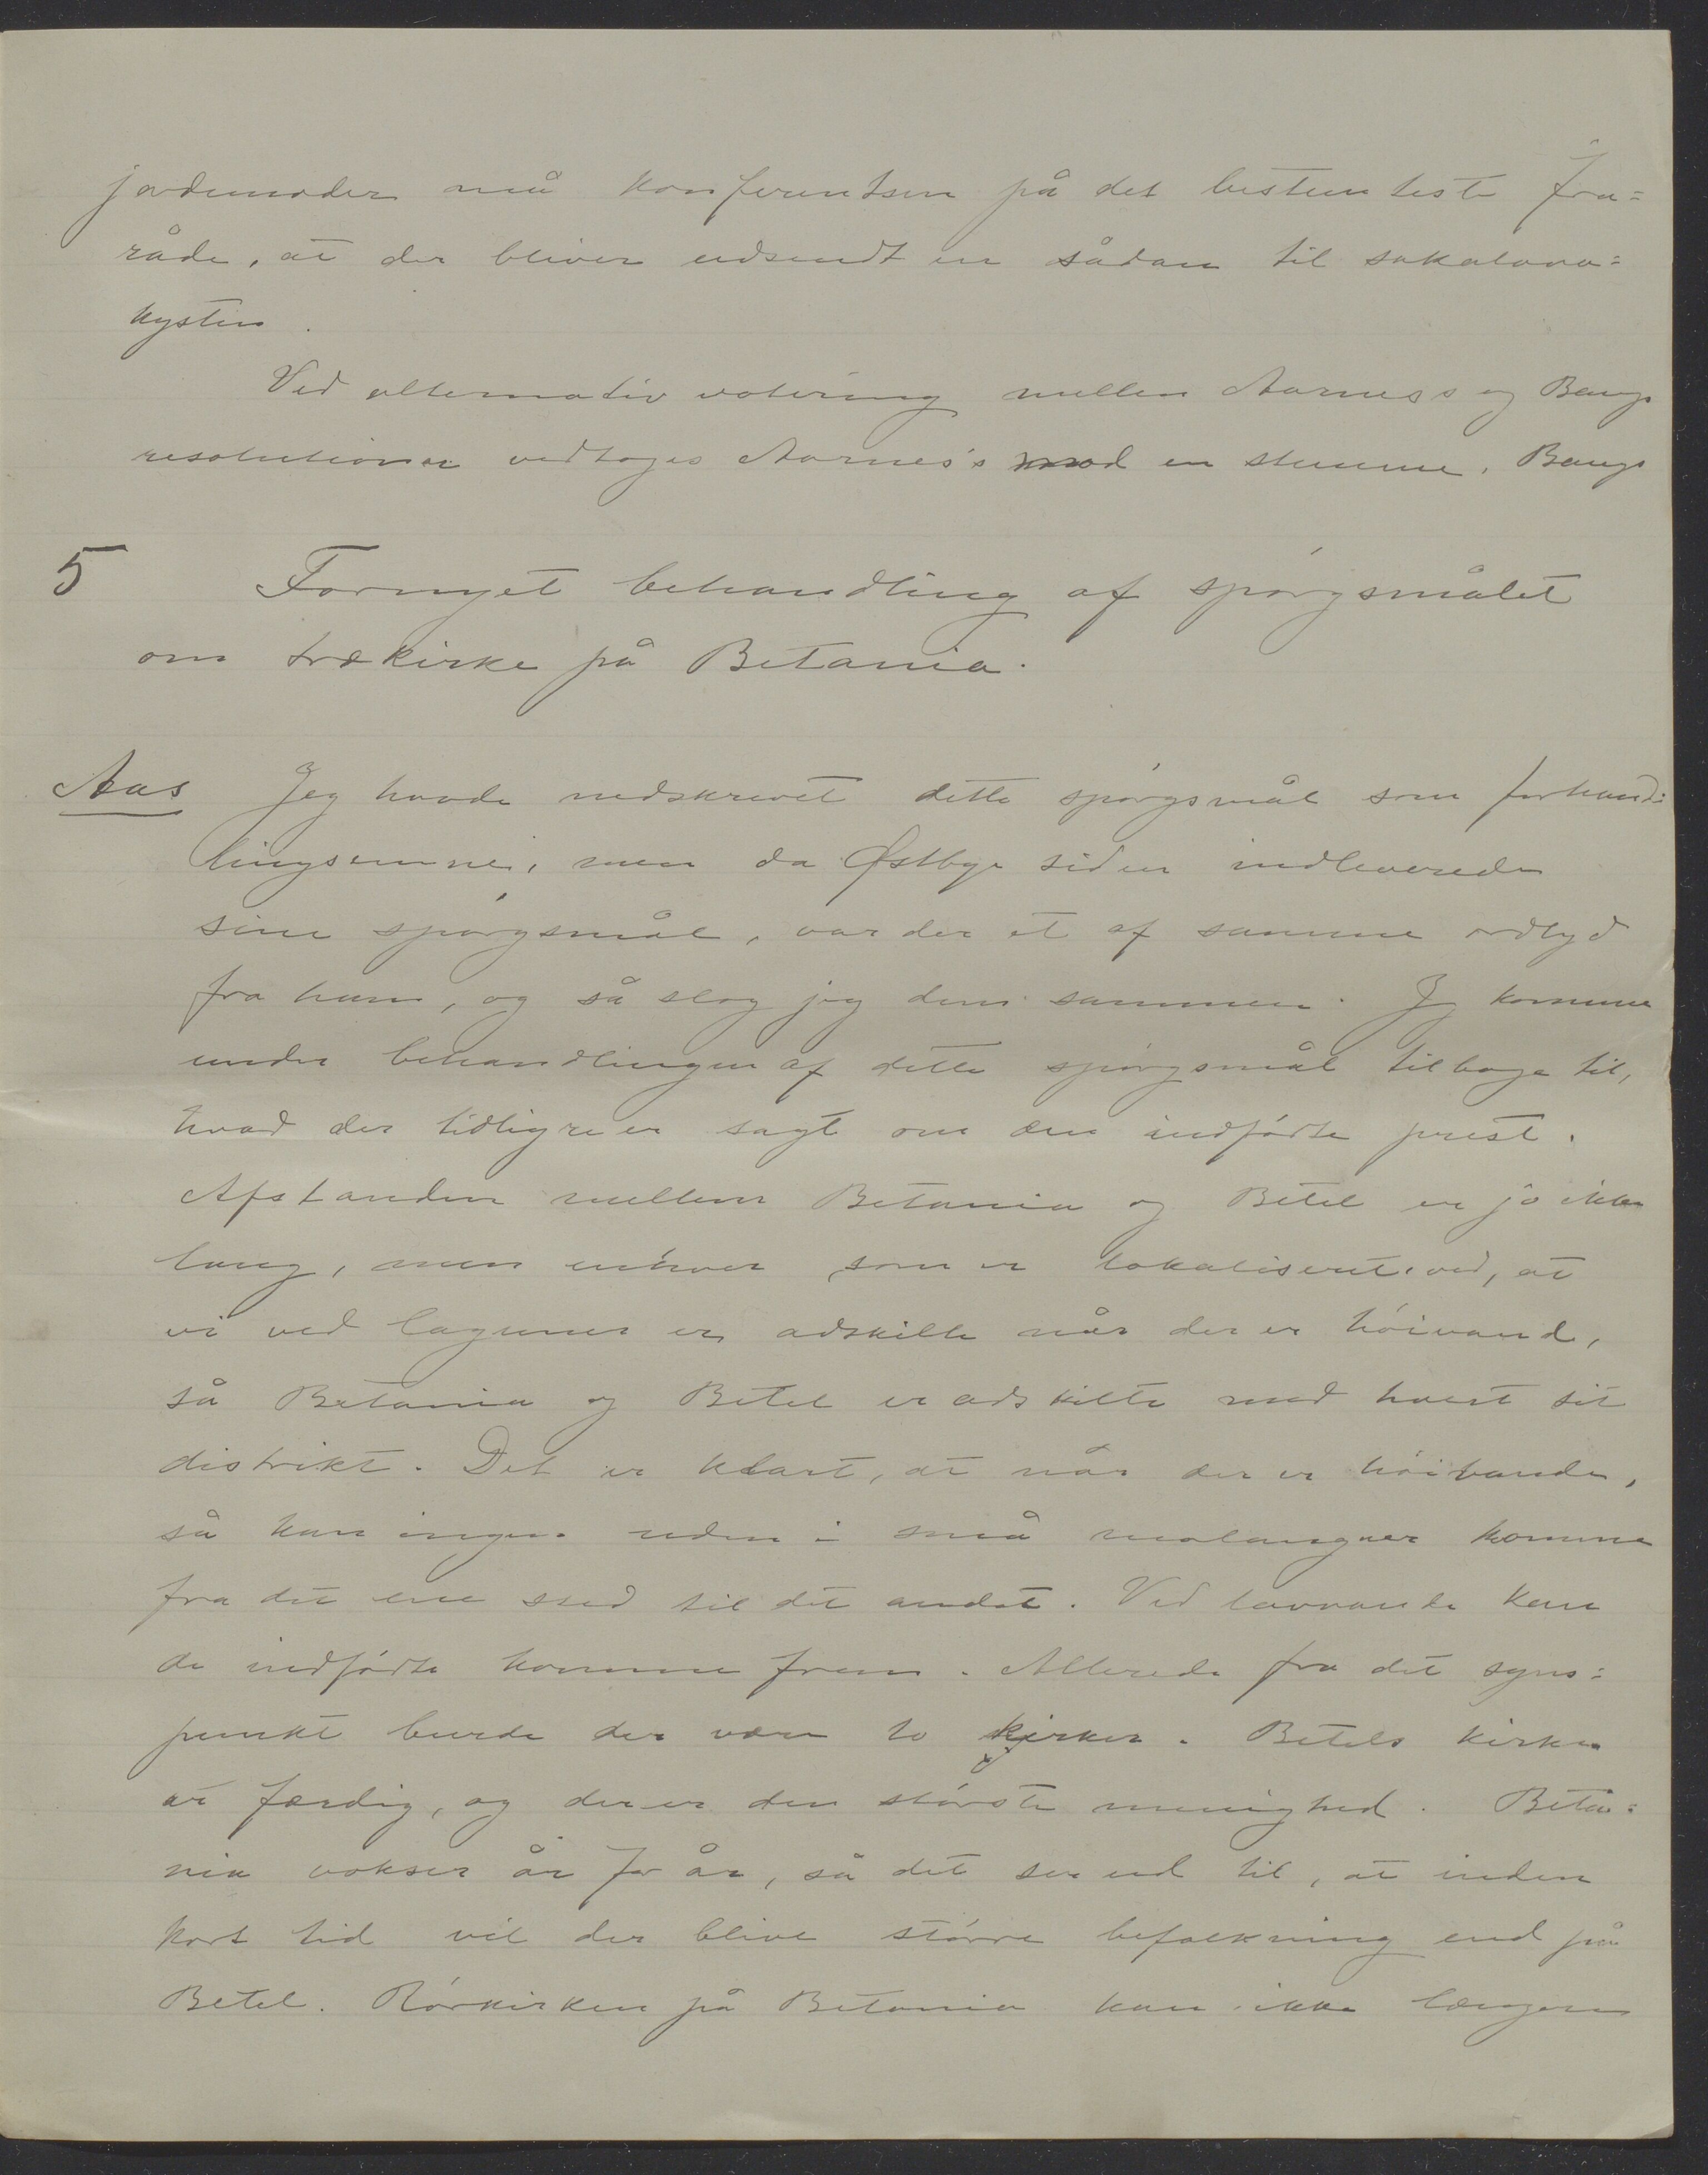 jordemoder må konferentsen på det bestemteste fra=
råde, at der bliver udsendt en sådan til sakalava=
kysten.
Ved alternativ votering mellem Aarness og Bangs
resolutioner vedtoges Aarnes's mod en stemme, Bangs
5 Fornyet behandling af spórgsmålet
om trækirke på Betania.
Aas Jeg havde nedskrevet dette spórgsmål som forhand=
lingsemne, men da Østbye siden indleverede
sine spórgsmål, var der et af samme ordlyd
fra ham, og så slog jeg dem sammen. Jeg kommer
under behandlingen af dette spórgsmål tilbage til,
hvad der tidligere er sagt om den indfódte prest.
Afstanden mellem Betania og Betel er jo ikke
lang, men enhver som er lokaliseret, ved, at
vi ved laguner er adskilte når der er hóivand,
så Betania og Betel er adskilte med hvert sit
distrikt. Det er klart, at når der er hóivande,
så kan ingen uden i små molanguer komme
fra det ene sted til det andet. Ved lavvande kan
de indfódte komme frem. Allerede fra det syns=
punkt burde der være to kirker. Betels kirke
er færdig, og der er den stórste menighed. Beta=
nia vokser år for år, så det ser ud til, at inden
kort tid vil der blive stórre befolkning end på
Betel. Rórkirken på Betania kan ikke længere